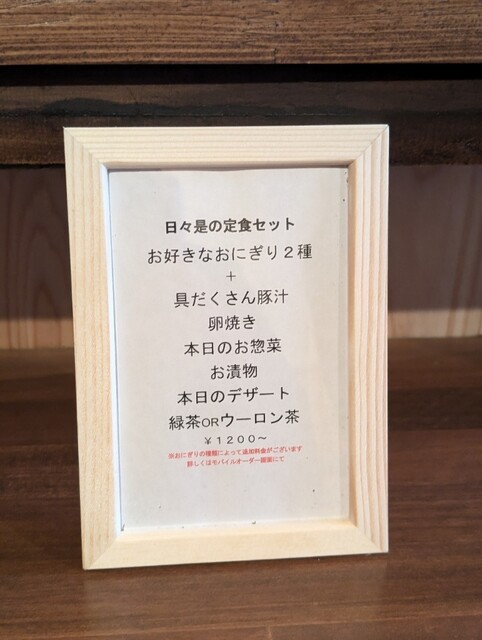 日々是の定食セット
お好きなおにぎり２種
＋
具だくさん豚汁
卵焼き
本日のお惣菜
お漬物
本日のデザート
緑茶ORウーロン茶
￥１２００～
※おにぎりの種類によって追加料金がございます
詳しくはモバイルオーダー画面にて